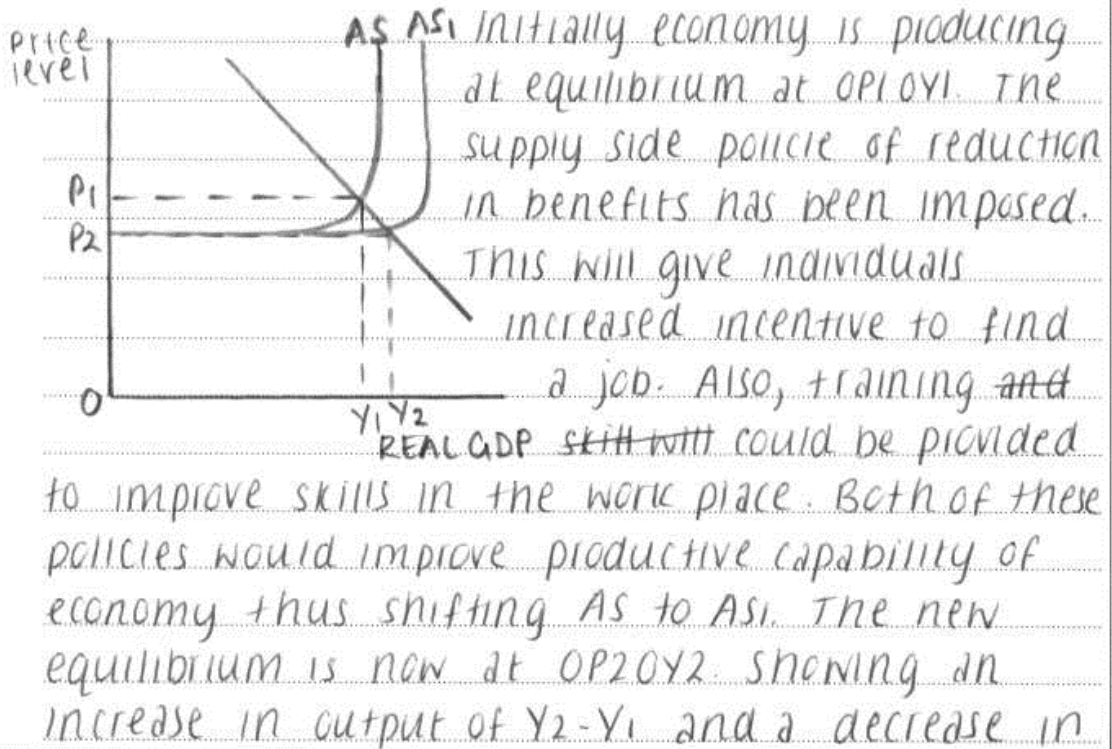 Price level AS AS1 Initially economy is producing
at equilibrium at OP1OY1. The
supply side policie of reduction
P1 in benefits has been imposed.
P2 This will give individuals
increased incentive to find
0 a job. Also, training and
Y1 Y2
REAL GDP skill will could be provided
to improve skills in the work place. Both of these
policies would improve productive capability of
economy thus shifting AS to AS1. The new
equilibrium is now at OP2OY2. Showing an
increase in output of Y2-Y1 and a decrease in